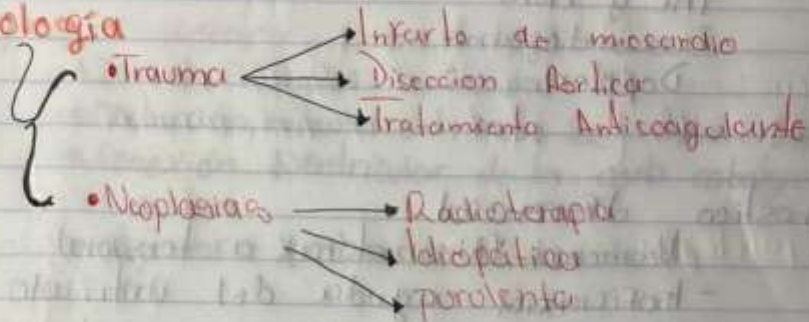 ología
•Trauma
Infarto del miocardio
Disección Aortica
Tratamiento Anticoagulante
•Neoplasias
Radioterapia
Idiopática
purulenta